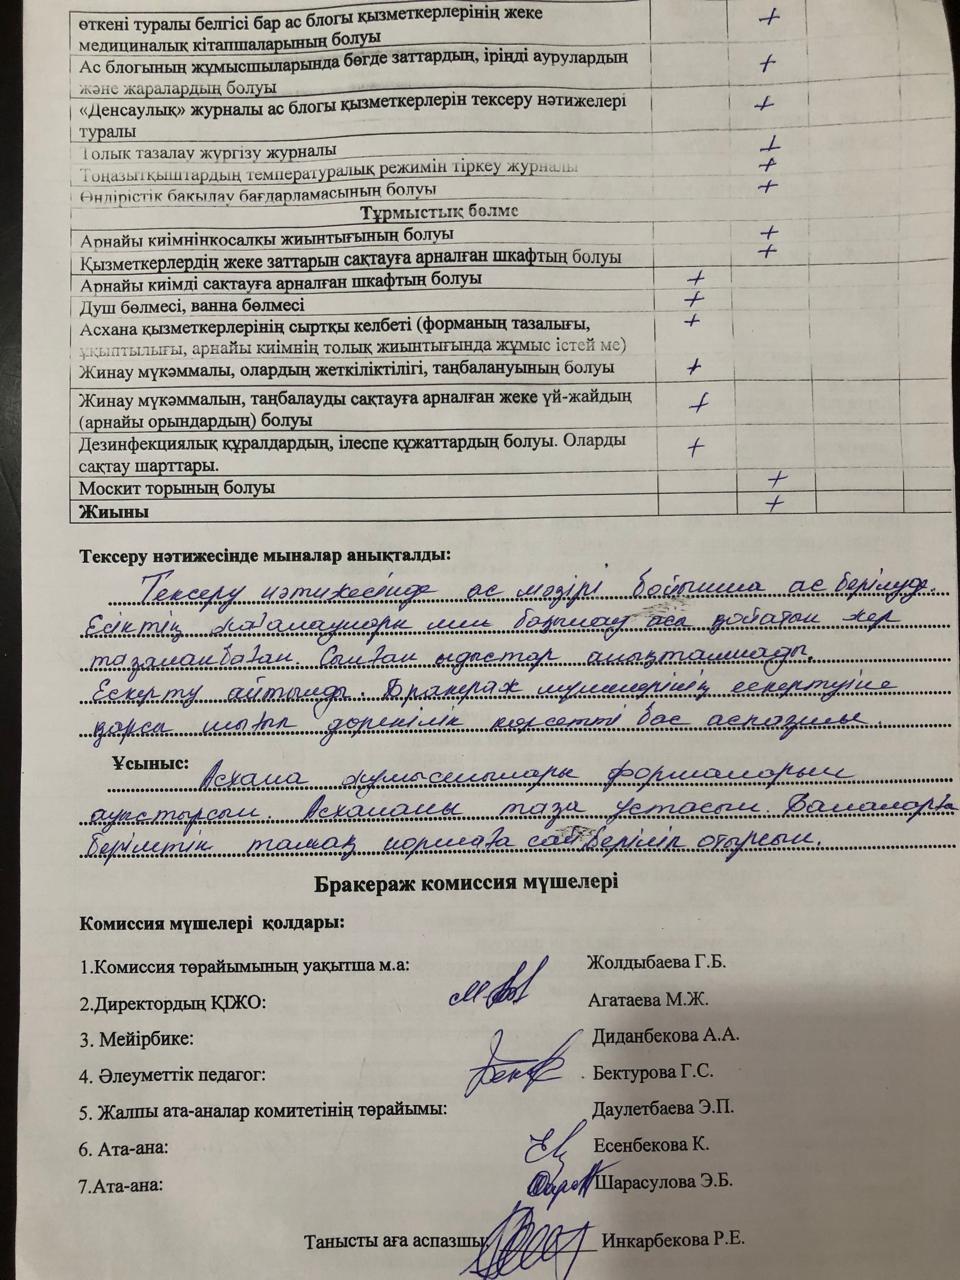 өткені туралы белгісі бар ас блогы қызметкерлерінің жеке +
медициналық кітапшаларының болуы
Ас блогының жұмысшыларында бөгде заттардың, іріңді аурулардың +
және жаралардың болуы
«Денсаулық» журналы ас блогы қызметкерлерін тексеру нәтижелері +
туралы
Толық тазалау жүргізу журналы +
Тоңазытқыштардың температуралық режимін тіркеу журналы +
Өндірістік бақылау бағдарламасының болуы +
Тұрмыстық бөлме
Арнайы киімнінкосалқы жиынтығының болуы +
Қызметкерлердің жеке заттарын сақтауға арналған шкафтың болуы +
Арнайы киімді сақтауға арналған шкафтың болуы +
Душ бөлмесі, ванна бөлмесі +
Асхана қызметкерлерінің сыртқы келбеті (форманың тазалығы, +
ұқыптылығы, арнайы киімнің толық жиынтығында жұмыс істей ме)
Жинау мүкәммалы, олардың жеткіліктілігі, таңбалануының болуы +
Жинау мүкәммалын, таңбалауды сақтауға арналған жеке үй-жайдың +
(арнайы орындардың) болуы
Дезинфекциялық құралдардың, ілеспе құжаттардың болуы. Оларды +
сақтау шарттары.
Москит торының болуы +
Жиыны +
Тексеру нәтижесінде мыналар анықталды:
Тексеру нәтижесінде ас мәзірі бойынша ас берілуде.
Есіктің жер
тазаланбаған. Сынған ыдыстар анықталмады.
Ескерту айтылды. Бракераж мүшелерінің ескертуіне
қарсы шығып дөрекілік көрсетті бас аспазшы.
Ұсыныс: Асхана жұмысшылары формаларын
ауыстырсын. Асхананы таза ұстасын. Балаларға
берілетін тамақ нормаға сай беріліп отырсын.
Бракераж комиссия мүшелері
Комиссия мүшелері қолдары:
1.Комиссия төрайымының уақытша м.а: Жолдыбаева Г.Б.
2.Директордың ҚІЖО: Агатаева М.Ж.
3. Мейірбике: Диданбекова А.А.
4. Әлеуметтік педагог: Бектурова Г.С.
5. Жалпы ата-аналар комитетінің төрайымы: Даулетбаева Э.П.
6. Ата-ана: Есенбекова К.
7.Ата-ана: Шарасулова Э.Б.
Танысты аға аспазшы: Инкарбекова Р.Е.